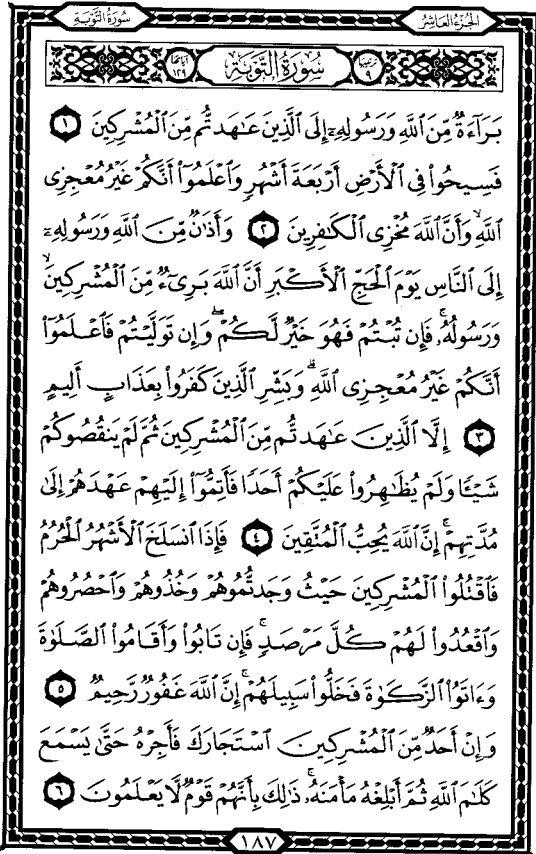 سُورَةُ التَّوْبَةِ
الجُزْءُ العَاشِرُ
ترتيبها ٩
سُورَةُ التَّوْبَةِ
آياتها ١٢٩
بَرَآءَةٌ مِّنَ ٱللَّهِ وَرَسُولِهِۦٓ إِلَى ٱلَّذِينَ عَـٰهَدتُّم مِّنَ ٱلْمُشْرِكِينَ ١
فَسِيحُوا۟ فِى ٱلْأَرْضِ أَرْبَعَةَ أَشْهُرٍ وَٱعْلَمُوٓا۟ أَنَّكُمْ غَيْرُ مُعْجِزِى
ٱللَّهِ ۙ وَأَنَّ ٱللَّهَ مُخْزِى ٱلْكَـٰفِرِينَ ٢ وَأَذَٰنٌ مِّنَ ٱللَّهِ وَرَسُولِهِۦٓ
إِلَى ٱلنَّاسِ يَوْمَ ٱلْحَجِّ ٱلْأَكْبَرِ أَنَّ ٱللَّهَ بَرِىٓءٌ مِّنَ ٱلْمُشْرِكِينَ ۙ
وَرَسُولُهُۥ ۚ فَإِن تُبْتُمْ فَهُوَ خَيْرٌ لَّكُمْ ۖ وَإِن تَوَلَّيْتُمْ فَٱعْلَمُوٓا۟
أَنَّكُمْ غَيْرُ مُعْجِزِى ٱللَّهِ ۗ وَبَشِّرِ ٱلَّذِينَ كَفَرُوا۟ بِعَذَابٍ أَلِيمٍ
٣ إِلَّا ٱلَّذِينَ عَـٰهَدتُّم مِّنَ ٱلْمُشْرِكِينَ ثُمَّ لَمْ يَنقُصُوكُمْ
شَيْـًٔا وَلَمْ يُظَـٰهِرُوا۟ عَلَيْكُمْ أَحَدًا فَأَتِمُّوٓا۟ إِلَيْهِمْ عَهْدَهُمْ إِلَىٰ
مُدَّتِهِمْ ۚ إِنَّ ٱللَّهَ يُحِبُّ ٱلْمُتَّقِينَ ٤ فَإِذَا ٱنسَلَخَ ٱلْأَشْهُرُ ٱلْحُرُمُ
فَٱقْتُلُوا۟ ٱلْمُشْرِكِينَ حَيْثُ وَجَدتُّمُوهُمْ وَخُذُوهُمْ وَٱحْصُرُوهُمْ
وَٱقْعُدُوا۟ لَهُمْ كُلَّ مَرْصَدٍ ۚ فَإِن تَابُوا۟ وَأَقَامُوا۟ ٱلصَّلَوٰةَ
وَءَاتَوُا۟ ٱلزَّكَوٰةَ فَخَلُّوا۟ سَبِيلَهُمْ ۚ إِنَّ ٱللَّهَ غَفُورٌ رَّحِيمٌ ٥
وَإِنْ أَحَدٌ مِّنَ ٱلْمُشْرِكِينَ ٱسْتَجَارَكَ فَأَجِرْهُ حَتَّىٰ يَسْمَعَ
كَلَـٰمَ ٱللَّهِ ثُمَّ أَبْلِغْهُ مَأْمَنَهُۥ ۚ ذَٰلِكَ بِأَنَّهُمْ قَوْمٌ لَّا يَعْلَمُونَ ٦
١٨٧